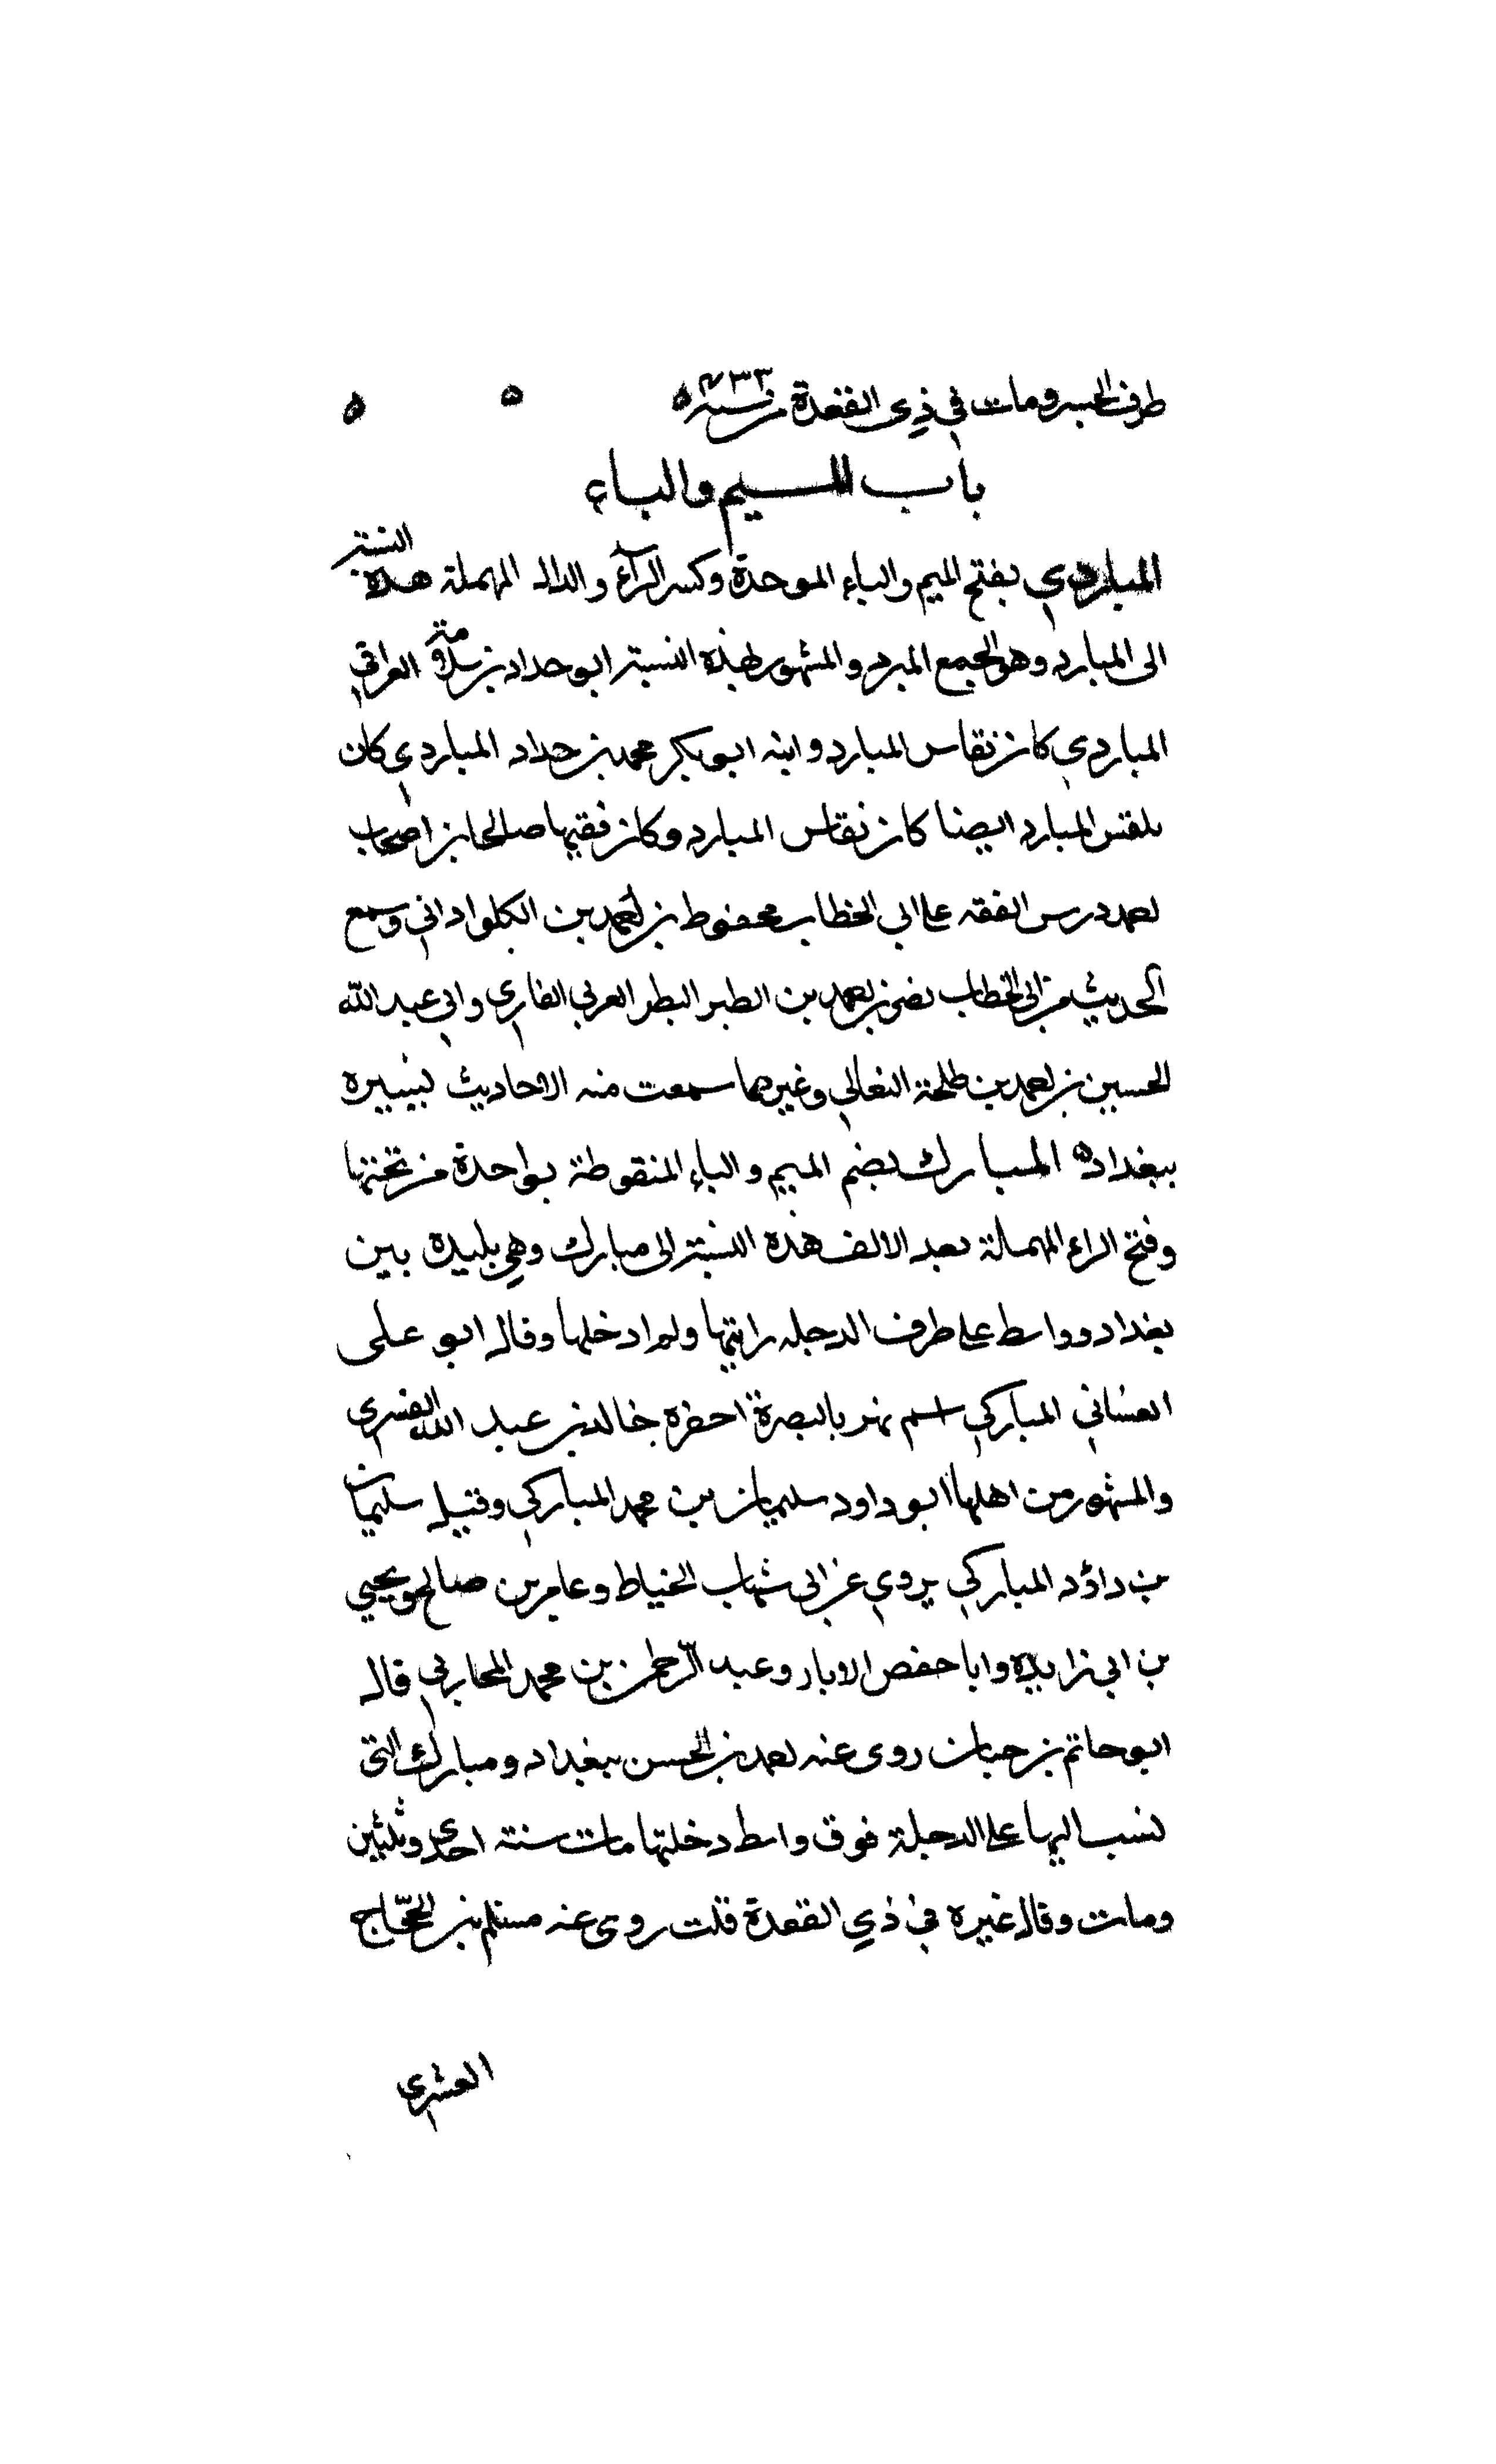 طرف الجسر ومات في ذي القعدة من سنه ٧٣٣ ه ه ه
باب الميم والباء
المباردي بفتح الميم والباء الموحدة وكسر الراء والدال المهملة هذه النسبة
الى المبارد وهو الجمع المبرد والمشهور بهذه النسبة ابو حداد بن سلامة العراقي
المباردي كان نقاس المبارد وابنه ابو بكر محمد بن حداد المباردي كان
ينقش المبارد ايضا كان نقاس المبارد وكان فقيها صالحا من اصحاب
احمد درس الفقه على ابي الخطاب محفوظ بن احمد بن الكلواداني وسمع
الحديث من ابي الخطاب نصر بن احمد بن البطر القاري وابي عبد الله
الحسين بن احمد بن طلحة النعالي وغيرهما سمعت منه الاحاديث يسيره
ببغداد ه المبارك بضم الميم والباء المنقوطة بواحدة من تحتها
وفتح الراء المهملة بعد الالف هذه النسبة الى مبارك وهي بليدة بين
بغداد وواسط على طرف الدجله رايتها ولم ادخلها وقال ابو على
الغساني المباركي اسم نهر بالبصرة احفره خالد بن عبد الله القسري
والمشهور من اهلها ابو داود سليمان بن محمد المباركي وقيل سليمان
بن داؤد المباركي يروي عن ابي شهاب الخياط وعامر بن صالح ويحيي
بن ابي زايده وابا حفص الابار وعبد الرحمن بن محمد المحاربي قال
ابو حاتم بن حبان روى عنه احمد بن الحسن ببغداد ومبارك التي
نسب اليها على الدجلة فوق واسط دخلتها مات سنة احدى وثلثين
ومات وقال غيره في ذي القعدة قلت روى عنه مسلم بن الحجّاج